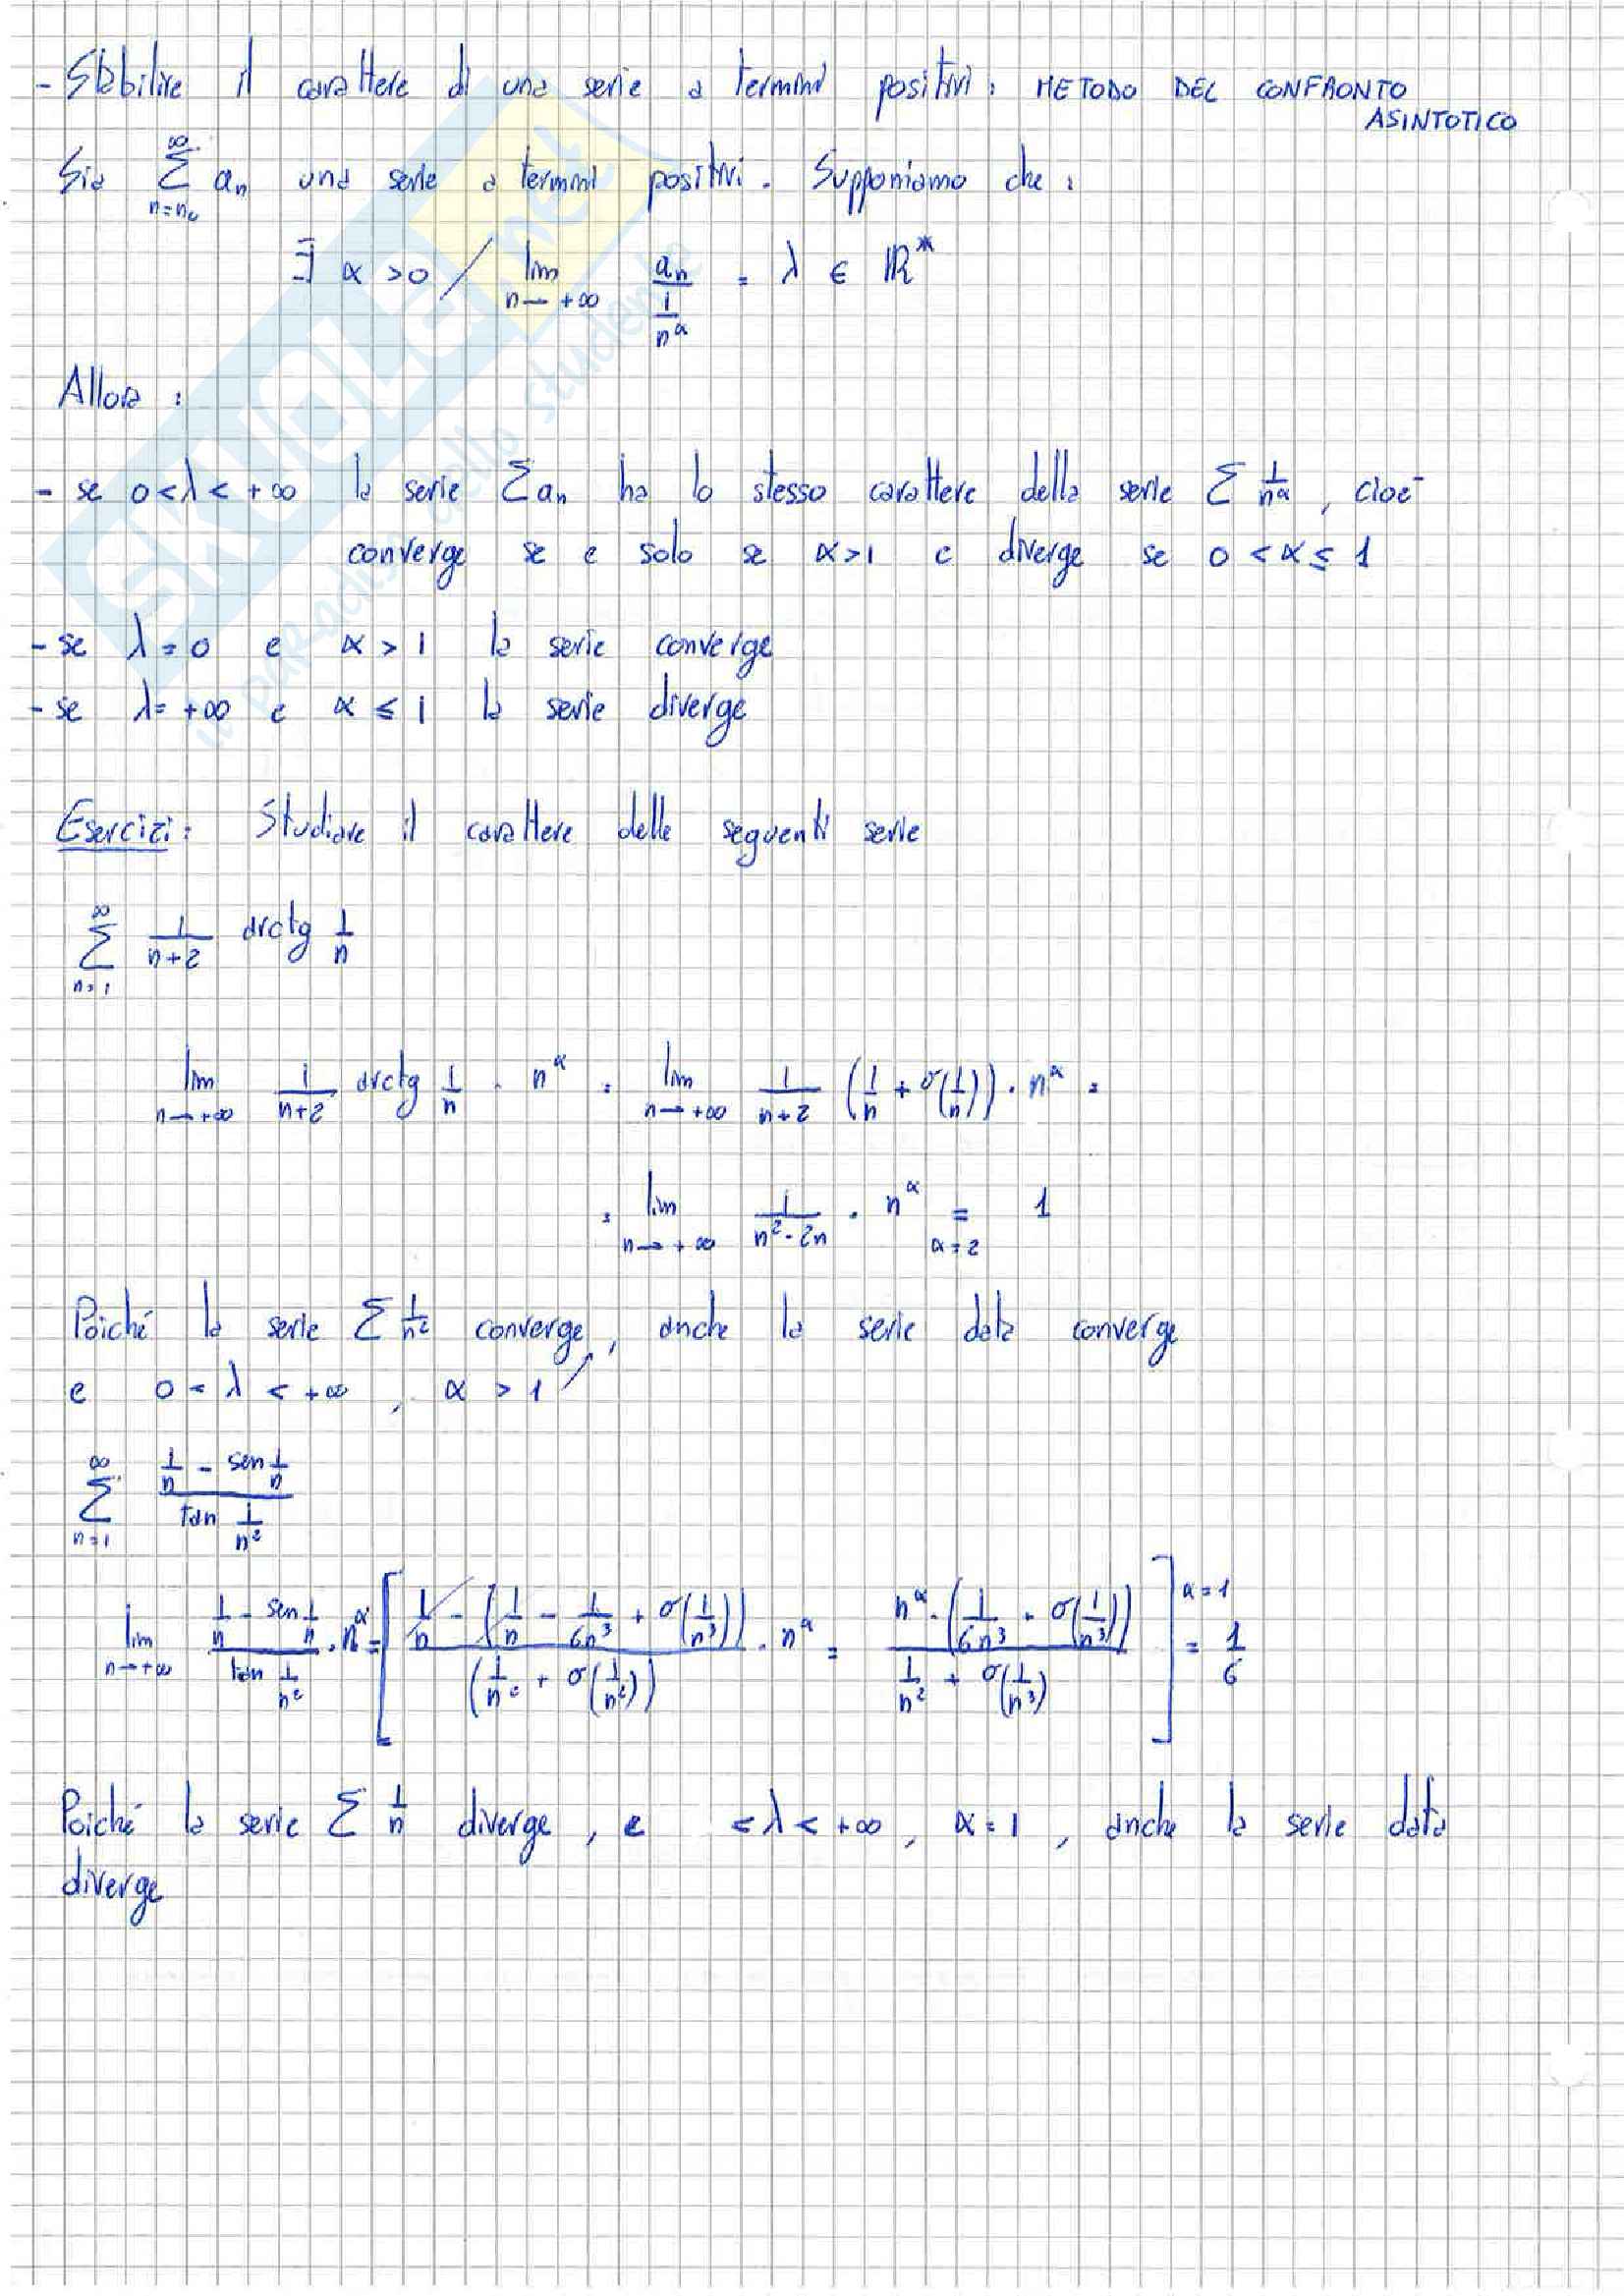 - Stabilire il carattere di una serie a termini positivi: METODO DEL CONFRONTO
ASINTOTICO
Sia ∑_{n=n₀}^{∞} aₙ una serie a termini positivi. Supponiamo che:
∃ α >0 / lim_{n→+∞} aₙ / (1/n^α) = λ ∈ ℝ*
Allora:
- se 0<λ< +∞ la serie ∑aₙ ha lo stesso carattere della serie ∑ 1/n^α, cioè
converge se e solo se α>1 e diverge se 0 <α≤ 1
- se λ=0 e α > 1 la serie converge
- se λ= +∞ e α ≤ 1 la serie diverge
Esercizi: Studiare il carattere delle seguenti serie
∑_{n=1}^{∞} 1/(n+2) arctg 1/n
lim_{n→+∞} 1/(n+2) arctg 1/n · n^α = lim_{n→+∞} 1/(n+2) (1/n + σ(1/n)) · n^α =
= lim_{n→+∞} 1/(n²-2n) · n^α =_{α=2} 1
Poiché la serie ∑ 1/n² converge, anche la serie data converge
e 0 < λ < +∞, α > 1
∑_{n=1}^{∞} (1/n - sen 1/n) / (tan 1/n²)
lim_{n→+∞} (1/n - sen 1/n) / (tan 1/n²) · n^α = [ (1/n - (1/n - 1/6n³ + σ(1/n³))) / (1/n² + σ(1/n²)) · n^α = n^α · (1/6n³ + σ(1/n³)) / (1/n² + σ(1/n³)) ] α=1 = 1/6
Poiché la serie ∑ 1/n diverge, e <λ< +∞, α=1, anche la serie data
diverge
SKUOLA.net
il paradiso dello studente